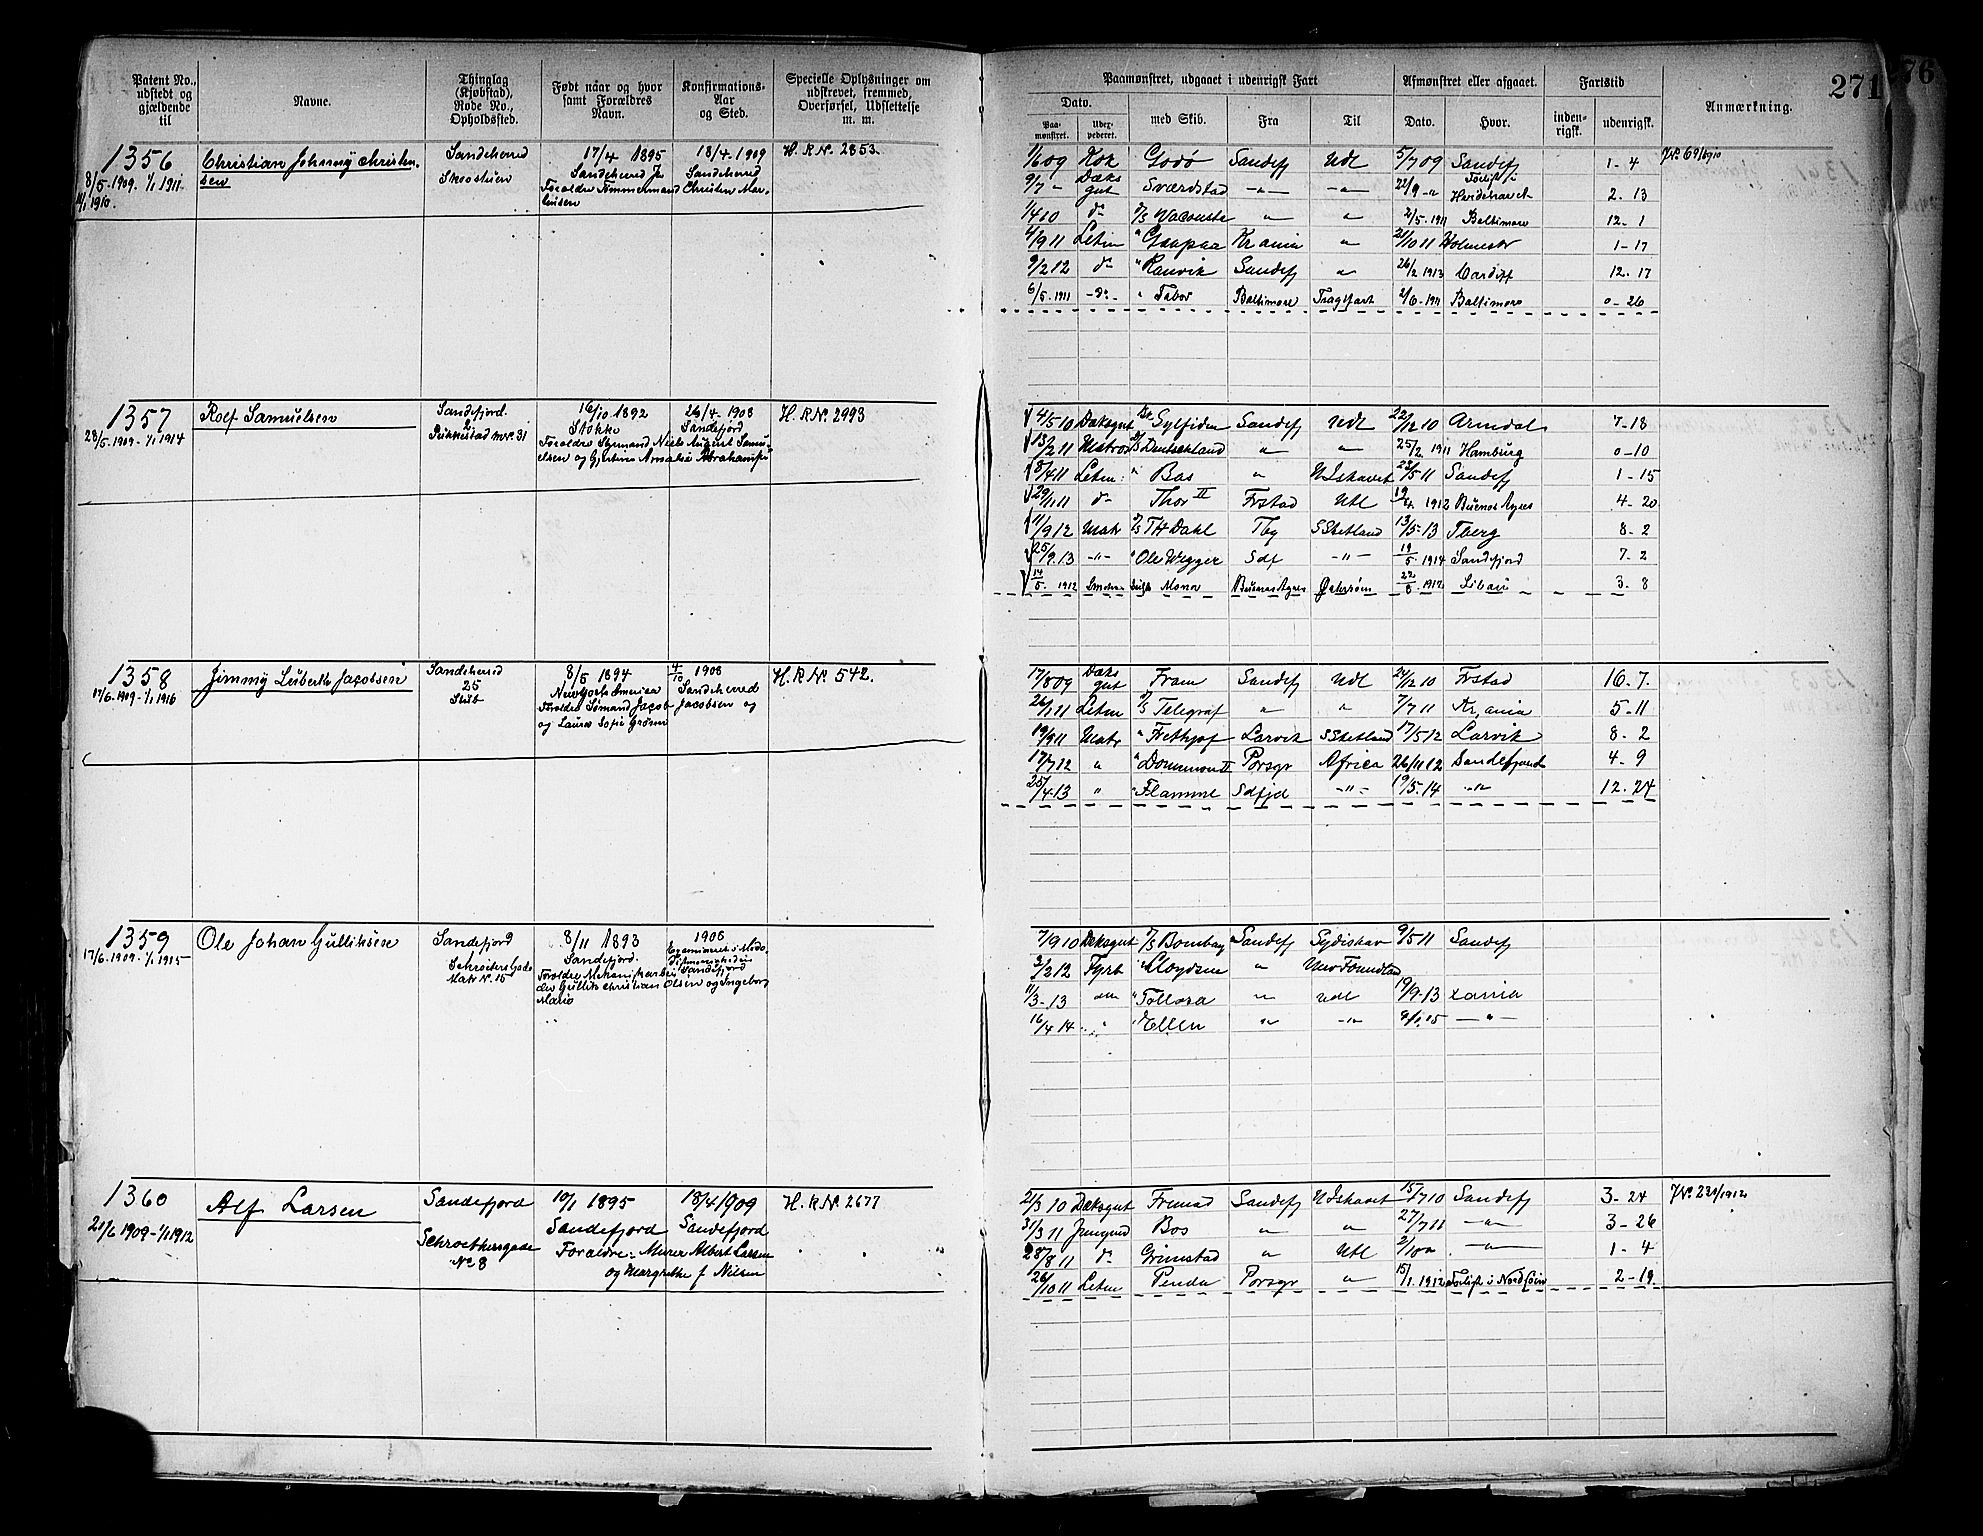 271
276
Patent No., udstedt og gjældende til
Navne.
Thinglag (Kjøbstad), Rode No., Opholdssted.
Født naar og hvor samt Forældres Navn.
Konfirmations-Aar og Sted.
Specielle Oplysninger om udskrevet, fremmed, Overførsel, Udslettelse m. m.
Paamønstret, udgaaet i udenrigsk Fart
Dato.
Paamønstret.
med Skib.
Fra
Til
Afmønstret eller afgaaet.
Dato.
Hvor.
Fartstid
indenrigsk.
udenrigsk.
Anmærkning.
1356
8/5-1909. 1/1 1911.
Christian Johnny Christensen
Sandeherred
17/4 1895
Sandeherred
18/4-1909
Sandeherred
H. R. No. 2853
1/6 09 Kok Godø Sandefj Udl 5/7 09 Sandefj 1-4
9/7 " Dæksgut Sværdstad -"- -"- 22/9 -" Forlist i 2-13
1/4 10 do " " 2/5-1911 Baltimore 12-1
4/9 11 Letm " Krania " 21/10 11 Holmestr 1-17
9/2 12 do " Ranvik Sandefj " 26/2 1913 Cardiff 12-17
6/5-1911 -do- " Tabor Baltimore Fragtfart 2/6-1911 Baltimore 0-26
1357
28/5-1909-1/1 1914
Rolf Samuelsen
Sandefjord.
2
16/10 1892
Stokke
Forældre Styrmand Niels August Samuelsen og Amalie Abrahams
26/4-1908
Sandefjord
H. R No. 2993
4/5 10 Dæksgut Br Sylfiden Sandefj Udl 22/12 10 Arendal 7-18
13/2 11 Matros D/S Deutschland " " 25/2 1911 Hamburg 0-10
8/4 11 Letm: " Bas " N Ishavet 23/5 11 Sandefj 1-15
29/11 11 do Thor II Frstad Udl 19/4 1912 Buenos Ayres 4-20
11/9 12 Matr D/S TH Dahl Tbg S Shetland 13/5-13 Tberg 8-2
25/9.13 -"- " Ole Wegger Sdf -"- 19/5-1914 Sandefjord 7-2
14/5. 1912 Mona Buenos Ayres Østersøen 22/8-1912 Libau 3-8
1358
17/6-1909-1/1 1916
Jimmy Luberth Jacobsen
Sandeherred
25
Stub
8/5 1894
New York America
Forældre Sømand Jacob Jacobsen og
og Laura Sofie
4/10 1908
Sandeherred
H. R No. 542.
17/8 09 Dæksgut Fram Sandefj Udl 27/12 10 Frstad 16-7.
26/1 11 Letm D/S Telegraf " " 7/7 11 Kr,ania 5-11
19/9 11 Matr " Frithjof Larvik S Shetland 17/5 12 Larvik 8-2
17/7 12 " " Porsgr Africa 26/11 12 Sandefjord 4-9
25/4-13 " " Flamme Sdfjd -"- 19/5-14 -"- 12-24
1359
17/6-1909-1/1 1915
Ole Johan Gulliksen
Sandefjord
Matr No. 15
8/11 1893
Sandefjord.
Christian Olsen og Ingeborg Maria
1908
Sandefjord
7/9 10 Dæksgut D/S Bombay Sandefj Sydishav 9/5 11 Sandefj
3/2 12 Fyrb " " New Foundland
11/3-13 " Tellora -"- Udl 19/9-13 Xania
16/4 14 " Ellen -"- -"- 9/1.15 -"-
1360
21/6 1909-1/1 1912
Alf Larsen
Sandefjord
No. 8
10/1 1895
Sandefjord
Forældre: Murer Albert Larsen
og Margrethe f Nilsen
18/4 1909
Sandefjord
H. R. No. 2677
2/3 10 Dæksgut Fremad Sandefj N Ishavet 15/7 10 Sandefj 3-24 J No. 231/1912
31/3 11 Jungmd Bos " " 27/7 11 -"- 3-26
28/8 11 do Grimstad " Udl 2/10 " -"- 1-4
26/10 11 Letm Penda Porsgr " 15/1. 1912 Forlist i Nordsøen 2-19